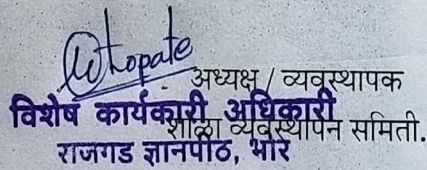 Whopate
अध्यक्ष / व्यवस्थापक
विशेष कार्यकारी अधिकारी
शाळा व्यवस्थापन समिती.
राजगड ज्ञानपीठ, भोर